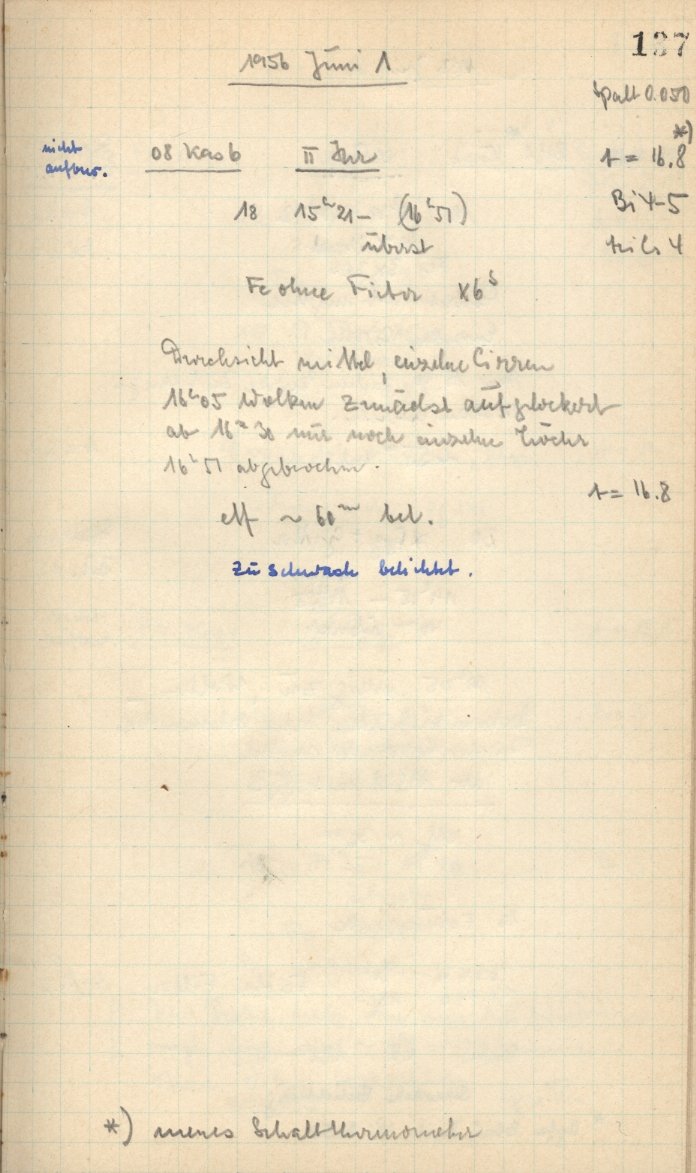 137
1956 Juni 1
Spalt 0.050
*)
nicht
aufbew.
08 Kas b II Jur
t = 16.8
18 15ʰ21 – (16ʰ51)
Bi 4-5
überst
teils 4
Fe ohne Filter x6ˢ
Durchsicht mittel, einzelne Cirren
16ʰ05 Wolken zunächst aufgelockert
ab 16ʰ30 nur noch einzelne Löcher
16ʰ51 abgebrochen.
t = 16.8
eff ~ 60ᵐ bel.
Zu schwach belichtet.
*) neues Schaltthermometer